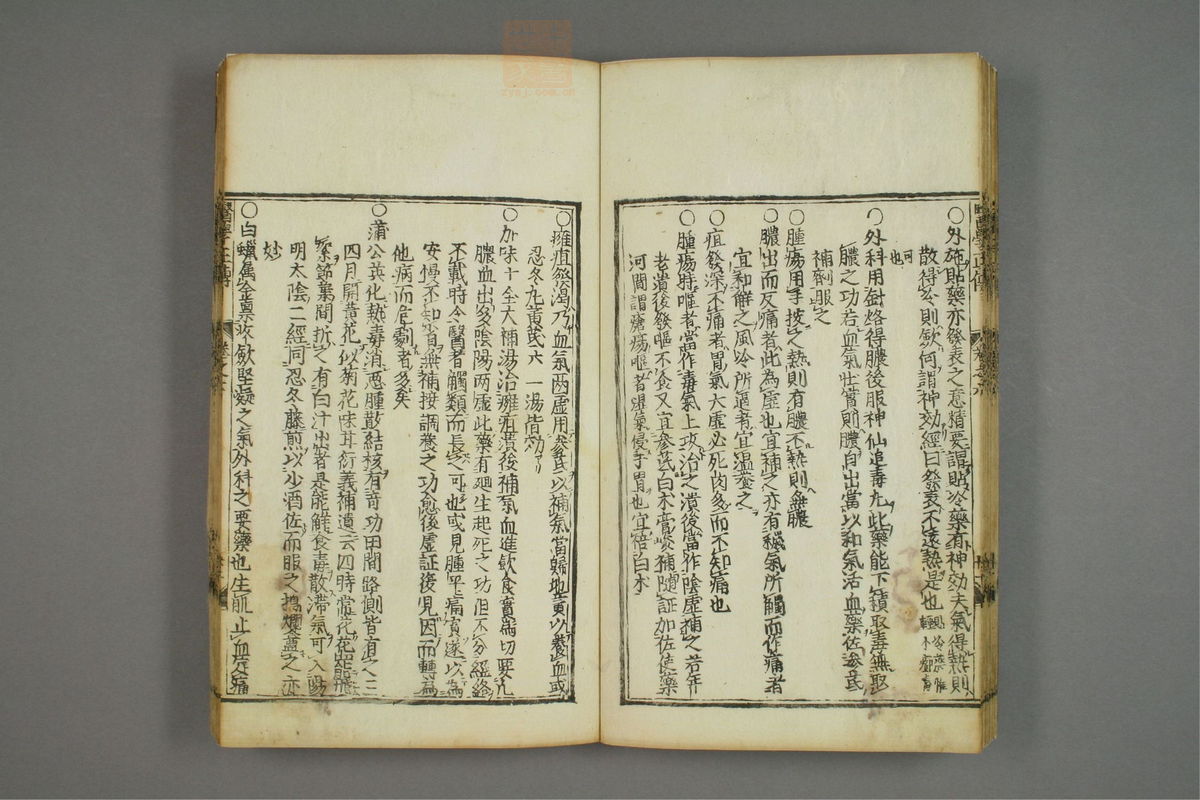 ○外施貼藥亦發表之意精要謂貼冷藥有神効夫氣得熱則
散得冷則歛何謂神効經曰發表不遠熱是也
同也
○外科用針烙得膿後服神仙追毒丸此藥能下積取毒無取
膿之功若血氣壯實則膿自出當以和氣活血藥佐參芪
補劑服之
○腫瘍用手按之熱則有膿不熱則無膿
○膿出而反痛者此為虛也宜補之亦有穢氣所觸而作痛者
宜和解之風冷所逼者宜溫養之
○疽發深不痛者胃氣大虛必死肉多而不知痛也
○腫瘍時嘔者當作毒氣上攻治之潰後當作陰虛補之若年
老潰後發嘔不食又宜參芪白朮膏峻補隨証加佐使藥
河間謂瘡瘍嘔者濕氣侵于胃也宜倍白朮
醫學正傳
○癰疽發渴乃血氣兩虛用參芪以補氣當歸地黃以養血或
忍冬丸黃芪六一湯皆効
○加味十全大補湯治癰疽潰後補氣血進飲食實為切要凡
膿血出多陰陽兩虛此藥有廻生起死之功但不分經絡
不載時令醫者觸類而長之可也或見腫平痛寬遂以為
安慢不知省無補接調養之功愈後虛証復見因而轉為
他病而危劇者多矣
○蒲公英化熱毒消惡腫散結核有奇功田間路側皆有之三
四月開黃花似菊花味甘衍義補遺云四時常花花罷飛
絮節葉間折之有白汁出者是能解食毒散滯氣可入陽
明太陰二經同忍冬藤煎以少酒佐而服之搗爛盦之亦
妙
○白蠟属金禀收歛堅凝之氣外科之要藥也生肌止血定痛
醫學正傳